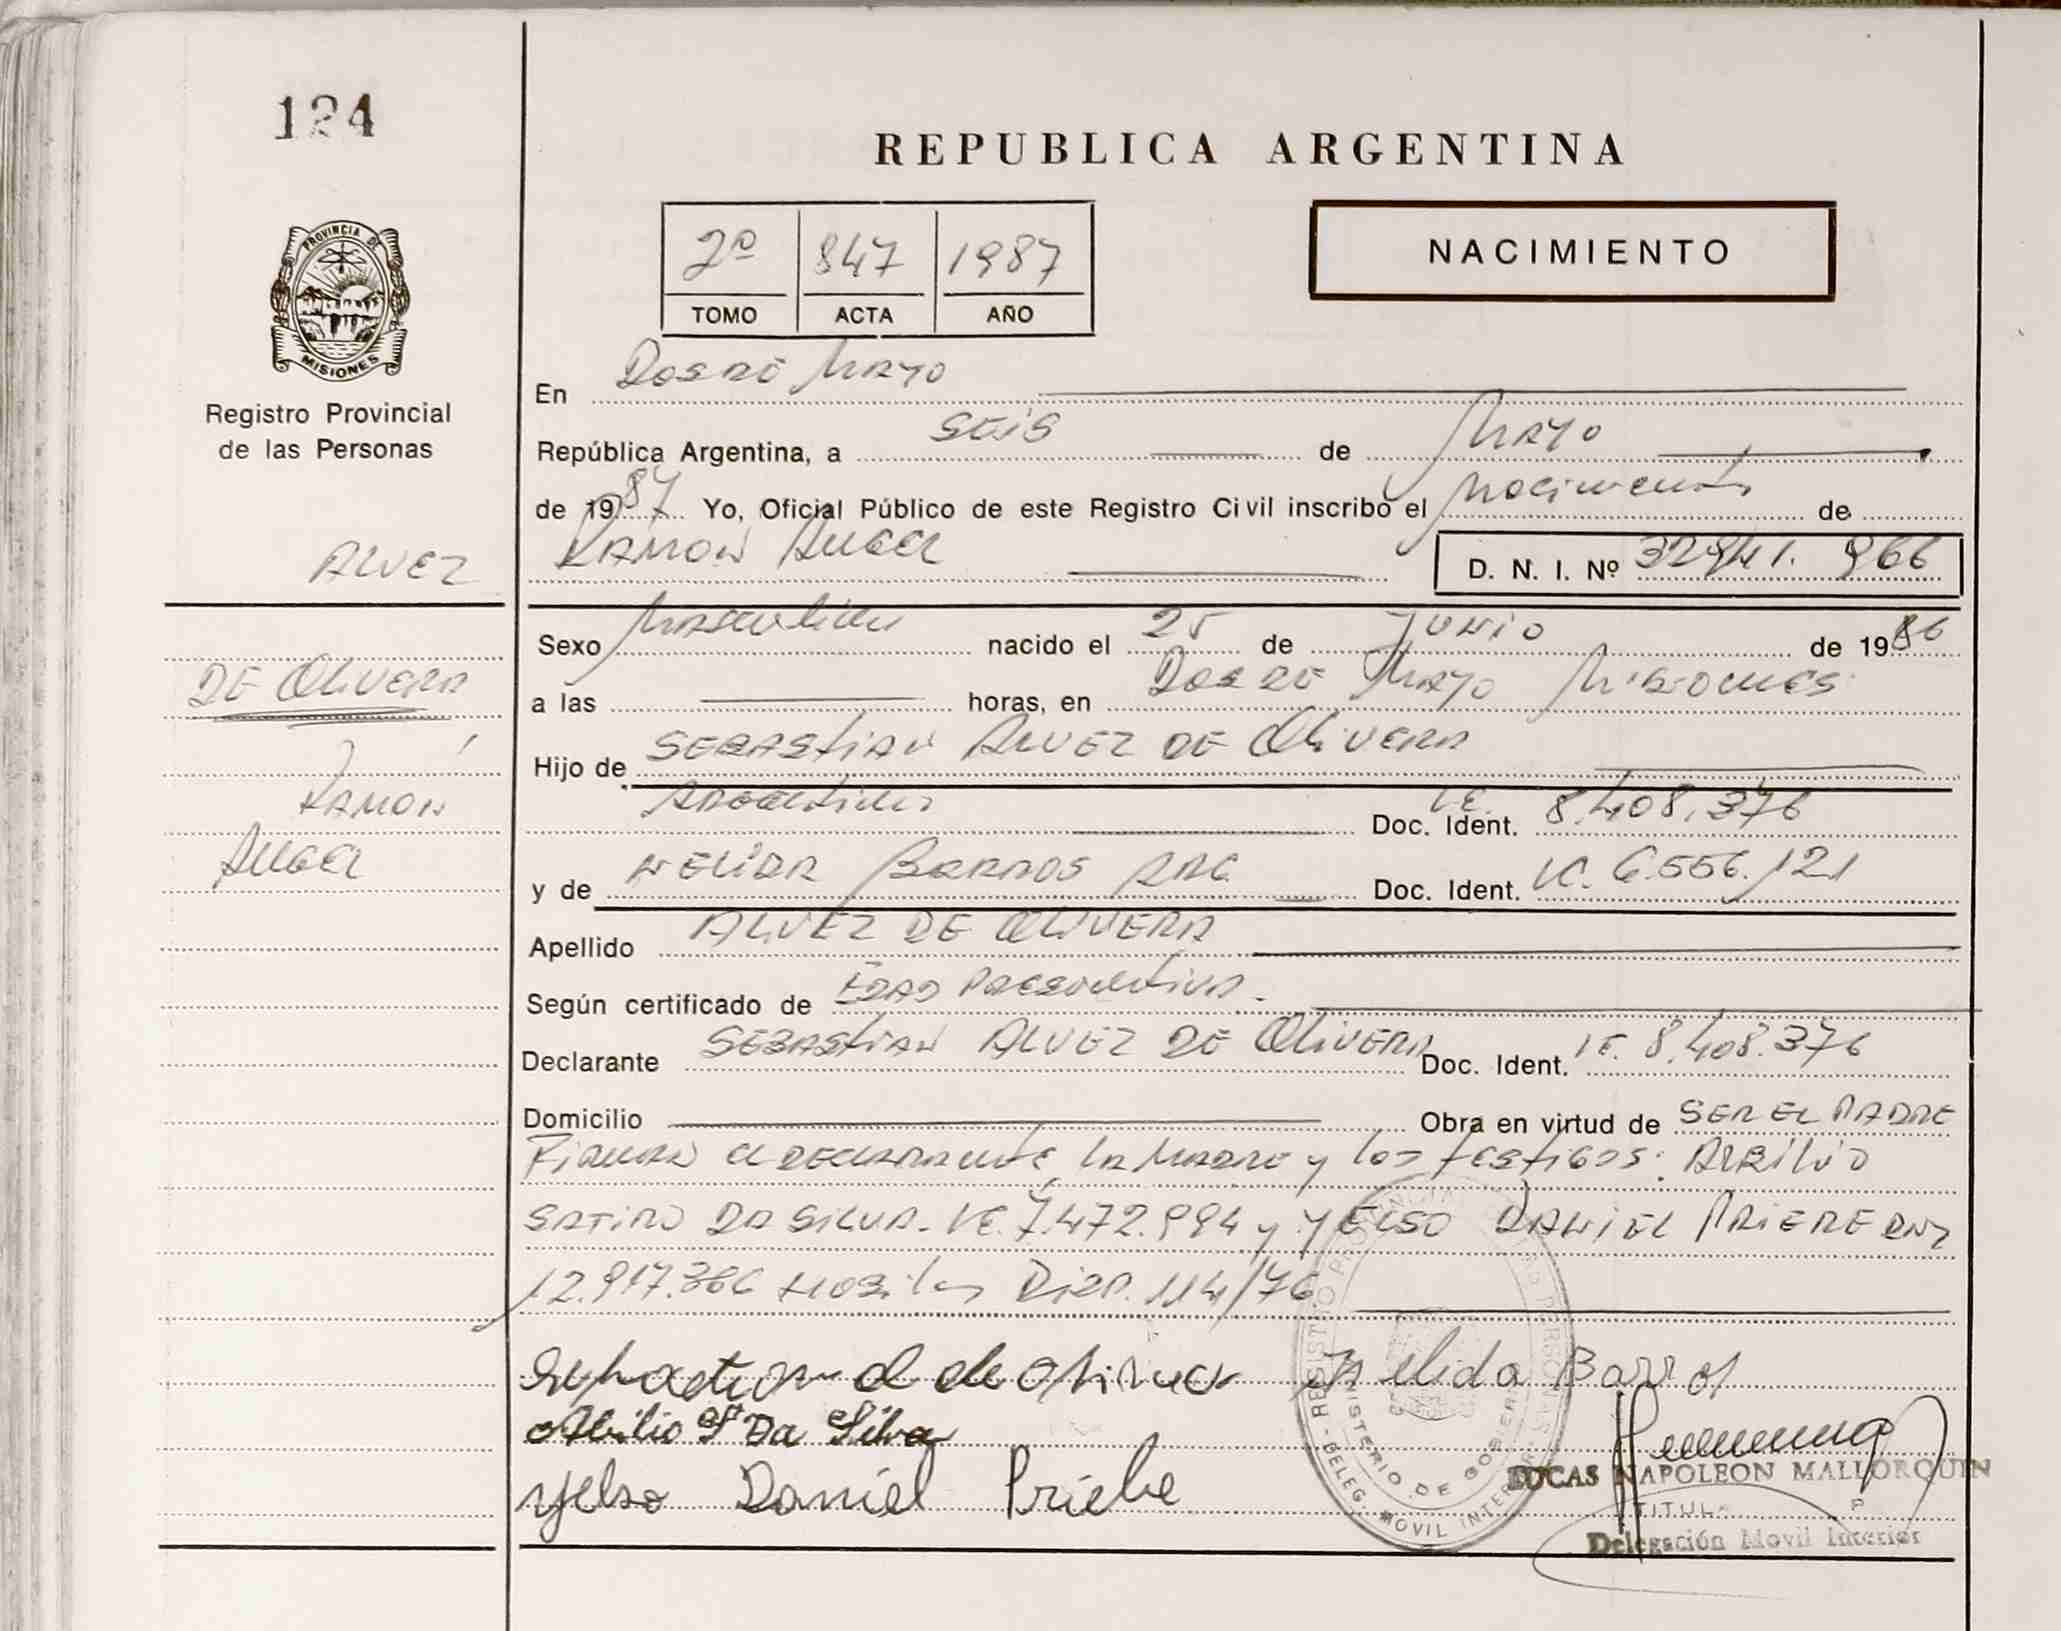 124
REPUBLICA ARGENTINA
NACIMIENTO
2º 847 1987
TOMO ACTA AÑO
PROVINCIA DE MISIONES
Registro Provincial
de las Personas
ALVEZ
DE OLIVERA
RAMON
ANGEL
En Dos de Mayo
República Argentina, a SEIS de Mayo
de 1987 Yo, Oficial Público de este Registro Civil inscribo el Nacimiento de
RAMON ANGEL D. N. I. Nº 32.941. 966
Sexo Masculino nacido el 25 de JUNIO de 1986
a las horas, en Dos de Mayo Misiones
Hijo de SEBASTIAN ALVEZ DE OLIVERA
Argentino Doc. Ident. LE. 8.408.376
y de NELIDA BARROS ARG. Doc. Ident. LC. 6.556.121
Apellido ALVEZ DE OLIVERA
Según certificado de EDAD PRESUNTIVA.
Declarante SEBASTIAN ALVEZ DE OLIVERA Doc. Ident. LE. 8.408.376
Domicilio Obra en virtud de SER EL PADRE
Firman el DECLARANTE, LA MADRE y los testigos: ABILIO
SATIRO DA SILVA. LE. 7.472.994 y YELSO DANIEL PRIEBE DNI
12.917.386 Disp. 114/76
Nelida Barros
Abilio S Da Silva
Yelso Daniel Priebe
LUCAS NAPOLEON MALLORQUIN
TITULAR
Delegación Movil Interior
REGISTRO PROVINCIAL DE LAS PERSONAS - DELEG. MOVIL INTERIOR
MINISTERIO DE GOBIERNO